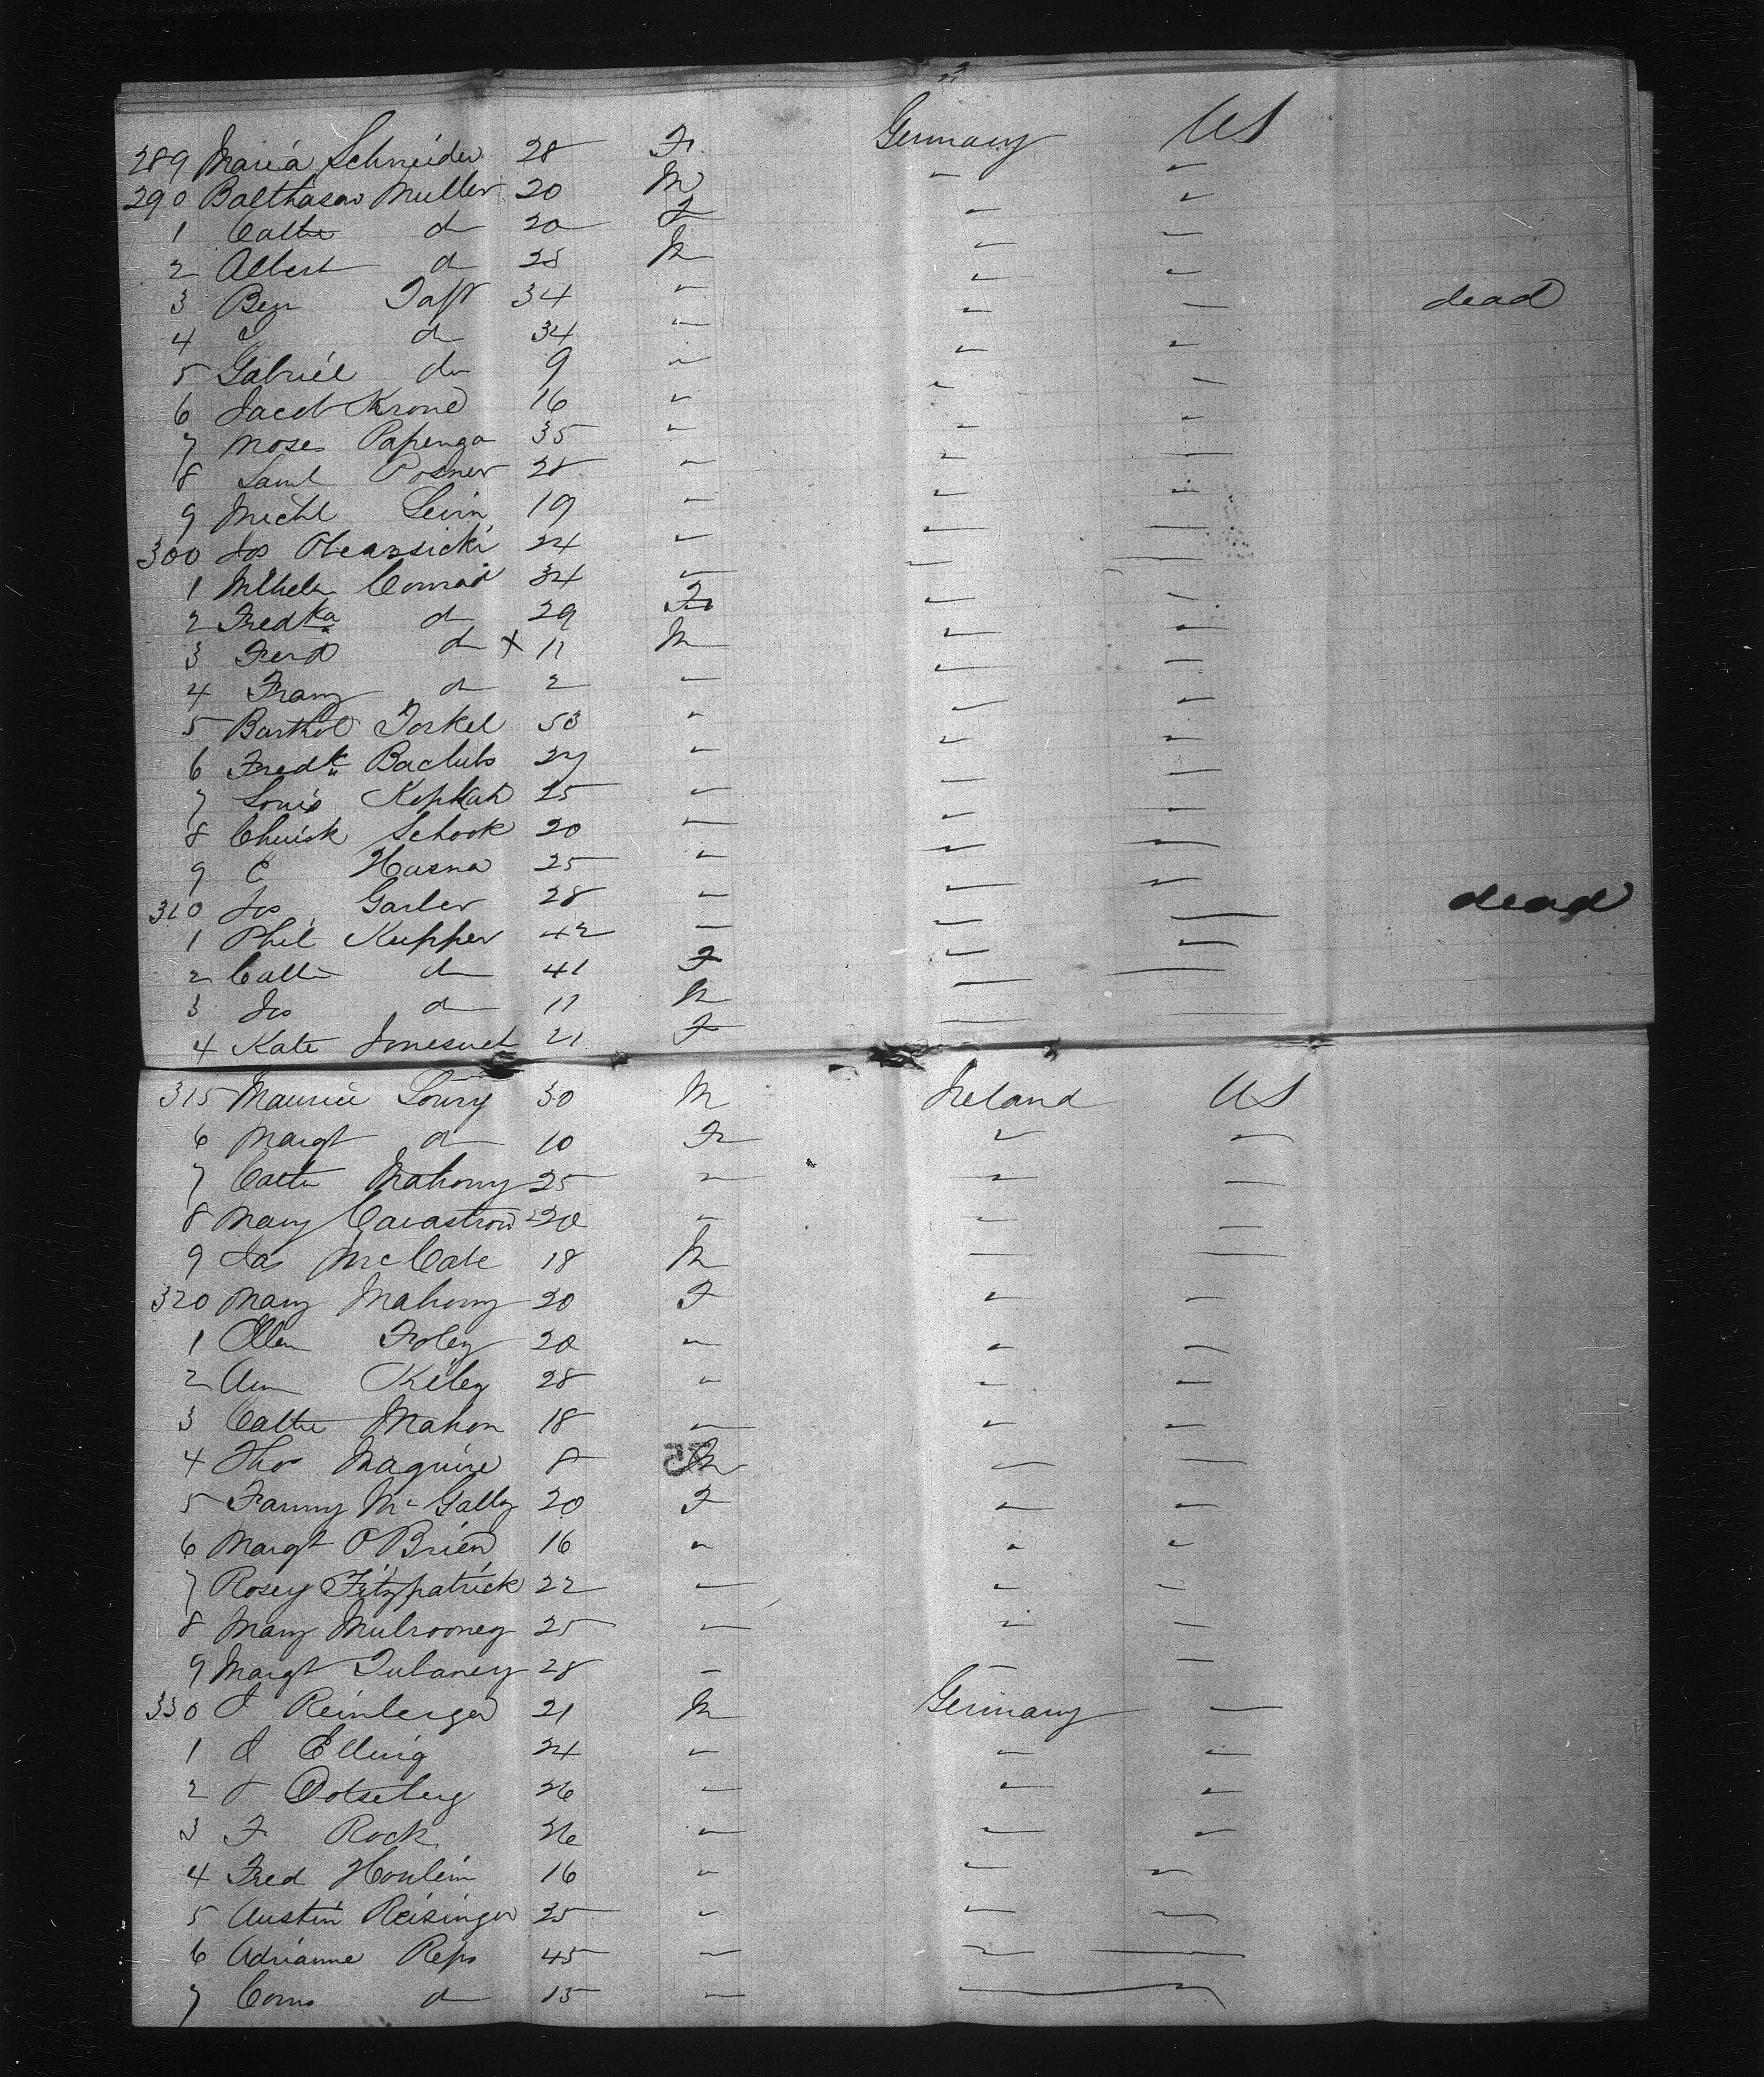 289 Maria Schneider 28 F. Germany US
290 Balthasar Muller 20 M " "
1 Cathe do 20 F " "
2 Albert do 25 M " "
3 Ben Taft 34 " " " dead
4 do 34 " " "
5 Gabriel do 9 " " "
6 Jacob Krone 16 " " "
7 Moses Papenga 35 " " "
8 Saml Posner 28 " " "
9 Michl Levin 19 " " "
300 Jos 24 " " "
1 Wilhelm Conrad 34 " " "
2 Fredka do 29 F " "
3 Ferd do X 11 M " "
4 Franz do 2 " " "
5 Barthol Torkel 50 " " "
6 Fredk 27 " " "
7 Louis Kepkah 25 " " "
8 Schook 20 " " "
9 C Hasna 25 " " "
310 Jos Garber 28 " " " dead
1 Phil Kupper 42 " " "
2 Cathe do 41 F " "
3 Jos do 11 M " "
4 Kate 21 F " "
315 Maurice Lowry 30 M Ireland US
6 Margt do 10 F " "
7 Cathe Mahony 25 " " "
8 Mary 20 " " "
9 Jas McCabe 18 M " "
320 Mary Mahony 20 F " "
1 Ellen Foley 20 " " "
2 Ann Kiley 28 " " "
3 Cathe Mahon 18 " " "
4 Thos Maguire 8 M " "
5 Fanny McGally 20 F " "
6 Margt O'Brien 16 " " "
7 Rosey Fitzpatrick 22 " " "
8 Mary Mulrooney 25 " " "
9 Margt Dulaney 28 " " "
330 J Reinberger 21 M Germany "
1 J Elling 24 " " "
2 J 26 " " "
3 F Rock 26 " " "
4 Fred Houlein 16 " " "
5 Austin Reisinger 25 " " "
6 Adrianne Reps 45 " " "
7 Corns do 15 " " "